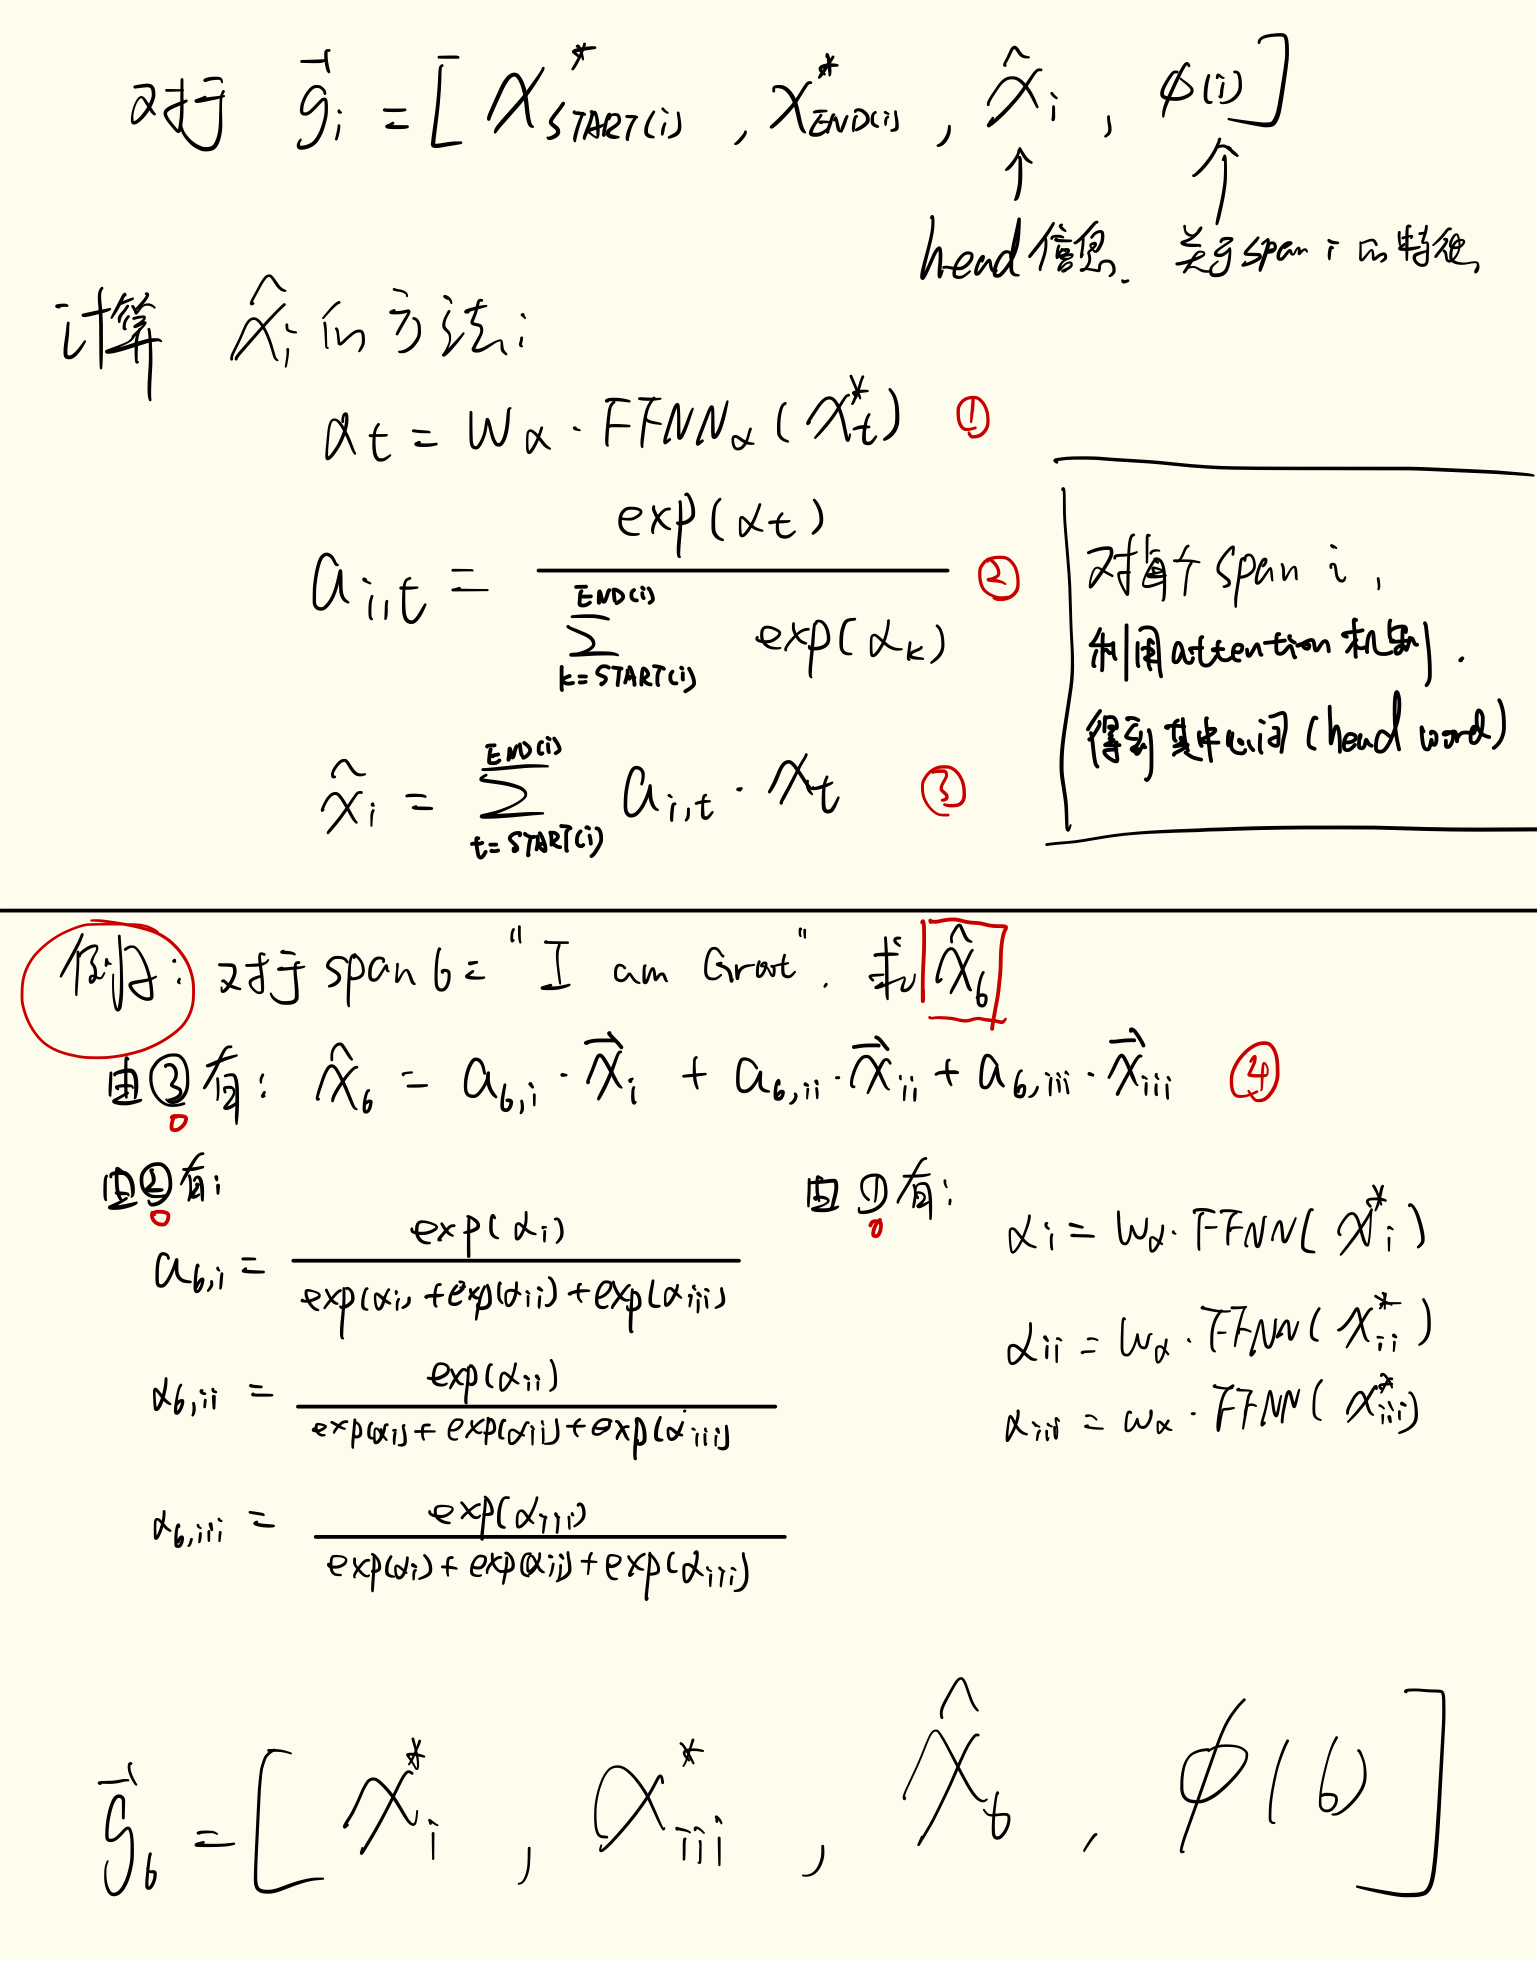 对于 g⃗_i = [ x*_START(i) , x*_END(i) , x̂_i , φ(i) ]
↑ ↑
head信息. 关于span i 的特征
计算 x̂_i 的方法:
α_t = w_α · FFNN_α ( x*_t ) ①
a_{i,t} = exp(α_t) / Σ_{k=START(i)}^{END(i)} exp(α_k) ②
x̂_i = Σ_{t=START(i)}^{END(i)} a_{i,t} · x_t ③
对每个 span i ,
利用attention机制.
得到其中心词 (head word)
例子: 对于 span 6 = "I am Grat". 求 x̂_6
由③有: x̂_6 = a_{6,i} · x⃗_i + a_{6,ii} · x⃗_ii + a_{6,iii} · x⃗_iii ④
由②有:
a_{6,i} = exp(α_i) / exp(α_i) + exp(α_ii) + exp(α_iii)
α_{6,ii} = exp(α_ii) / exp(α_i) + exp(α_ii) + exp(α_iii)
α_{6,iii} = exp(α_iii) / exp(α_i) + exp(α_ii) + exp(α_iii)
由①有:
α_i = w_α · FFNN( x*_i )
α_ii = w_α · FFNN( x*_ii )
α_iii = w_α · FFNN( x*_iii )
g⃗_6 = [ x*_i , x*_iii , x̂_6 , φ(6) ]